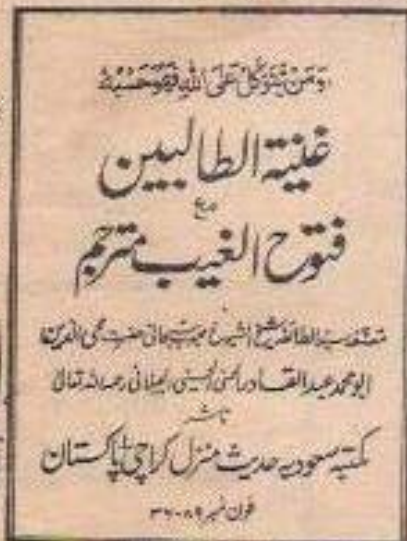 وَمَنْ يَتَوَكَّلْ عَلَى اللّٰهِ فَهُوَ حَسْبُهُ
غنیۃ الطالبین
مع
فتوح الغیب مترجم
الطائفہ شیخ الشیوخ محبوب سبحانی حضرت محی الدین
ابو محمد عبدالقادر الحسنی الحسینی الجیلانی رحمہ اللہ تعالیٰ
ناشر
مکتبہ سعودیہ حدیث منزل کراچی پاکستان
فون نمبر ۳۶۰۸۹